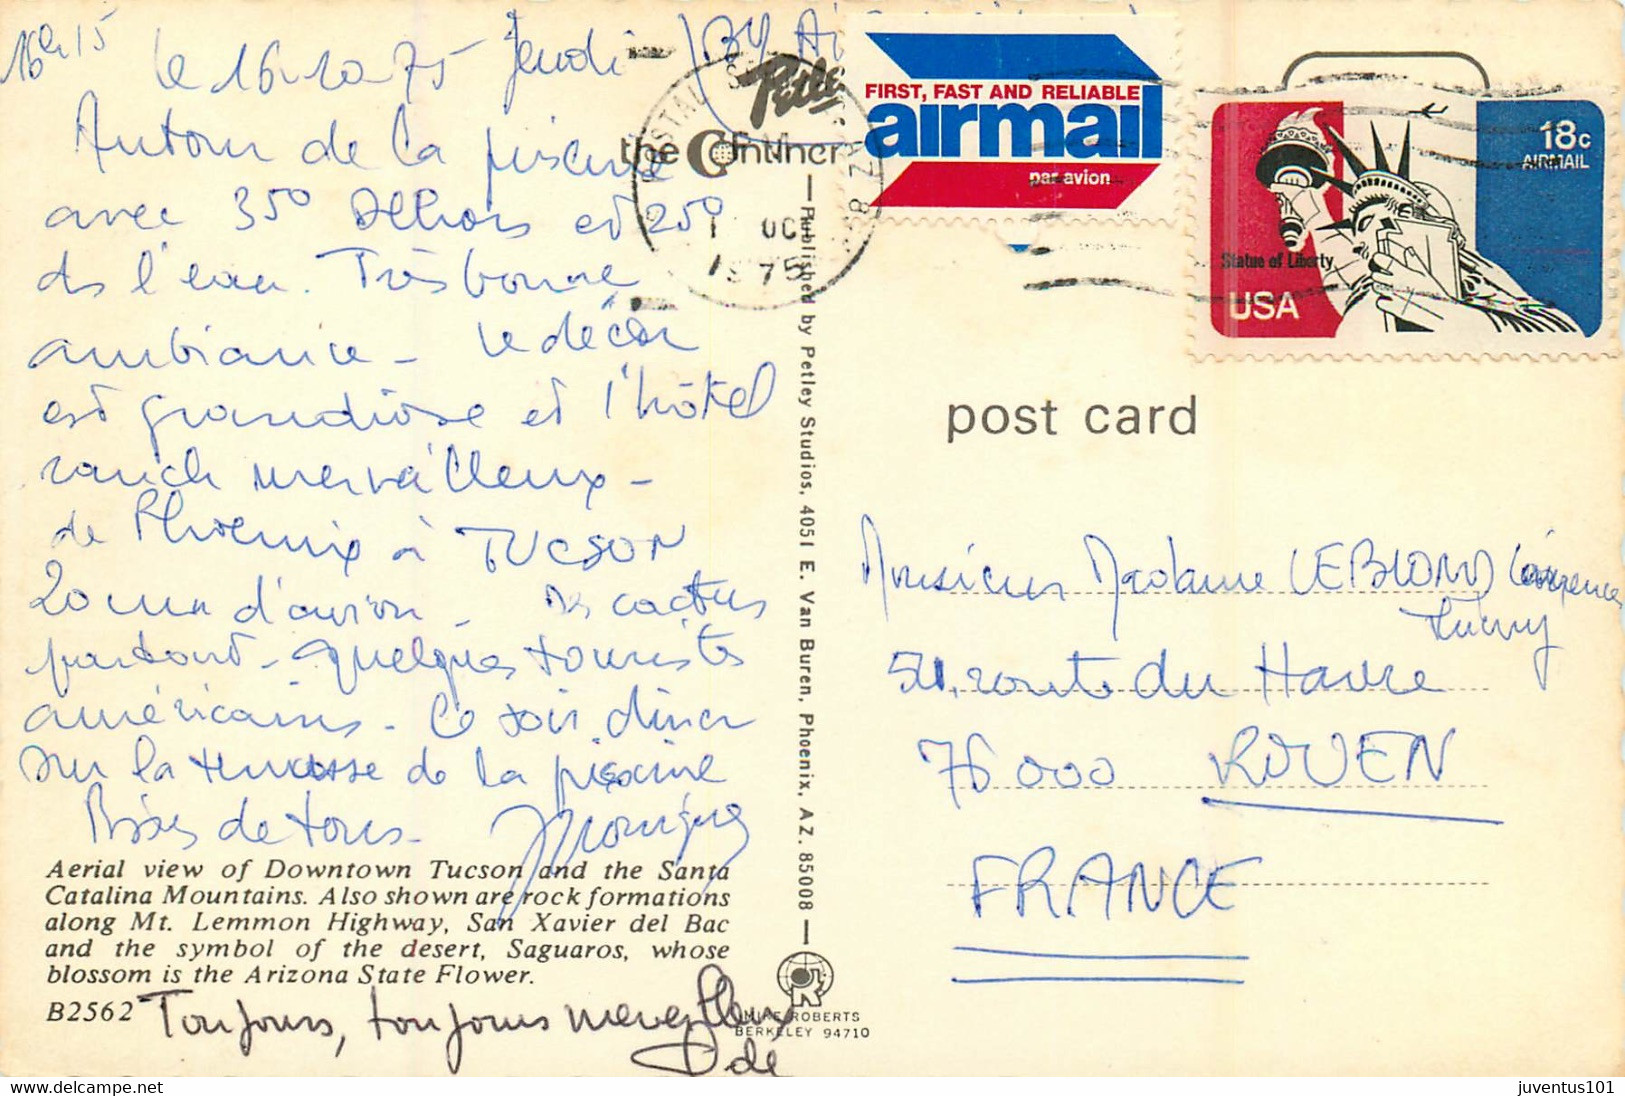 16h15
le 16-10-75 Jeudi
Autour de la piscine
avec 35° dehors et 25°
ds l'eau. Très bonne
ambiance - le décor
est grandiose et l'hôtel
ranch merveilleux -
de Phoenix à TUCSON
20 mn d'avion - des cactus
partout - quelques touristes
américains - Ce soir diner
sur la terrasse de la piscine
Bises de tous - Monique
Aerial view of Downtown Tucson and the Santa
Catalina Mountains. Also shown are rock formations
along Mt. Lemmon Highway, San Xavier del Bac
and the symbol of the desert, Saguaros, whose
blossom is the Arizona State Flower.
B2562
Toujours, toujours merveilleux
Odé
Petley
the Continental
1975
Published by Petley Studios, 4051 E. Van Buren, Phoenix, AZ. 85008
MIKE ROBERTS
BERKELEY 94710
FIRST, FAST AND RELIABLE
airmail
par avion
18c
AIRMAIL
Statue of Liberty
USA
post card
Monsieur Madame LEBLOND Laurence
Thierry
51, route du Havre
76000 ROUEN
FRANCE
juventus101